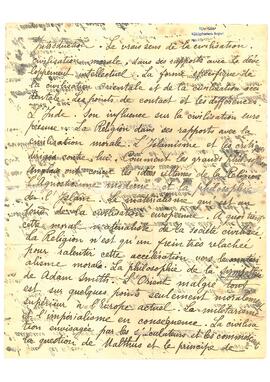 introduction. Le vrai sens de la civilisation.
civilisation morale, dans ses rapports avec le déve-
loppement intellectuel. La forme spécifique de
la civilisation orientale et de la civilisation occi-
dentale, des points de contact et les différences
L'Inde. Son influence sur la civilisation euro
péenne. La Religion dans ses rapports avec la
civilisation morale. L'Islamisme et les
dirigés contre lui. Comment les grands philosophes
anglais ont conçu les idées ultimes de Religion
L'agnosticisme moderne et la philosophie
de l'Islam. Le matérialisme qui est au
de la civilisation européenne. A quoi tient
cette moral matérialiste de la société civilisée
La Religion n'est qu'un frein très relâché
pour ralentir cette accélération vers le matéri
alisme morale. La philosophie de la sympathie
de Adam Smith. L'Orient malgré tout
est sur quelques points seulement moralement
supérieur à l'Europe actuel. Le militarisme
et l'impérialisme en conséquence. La civilisa
tion envisagée par les
la question de Malthus et le principe de